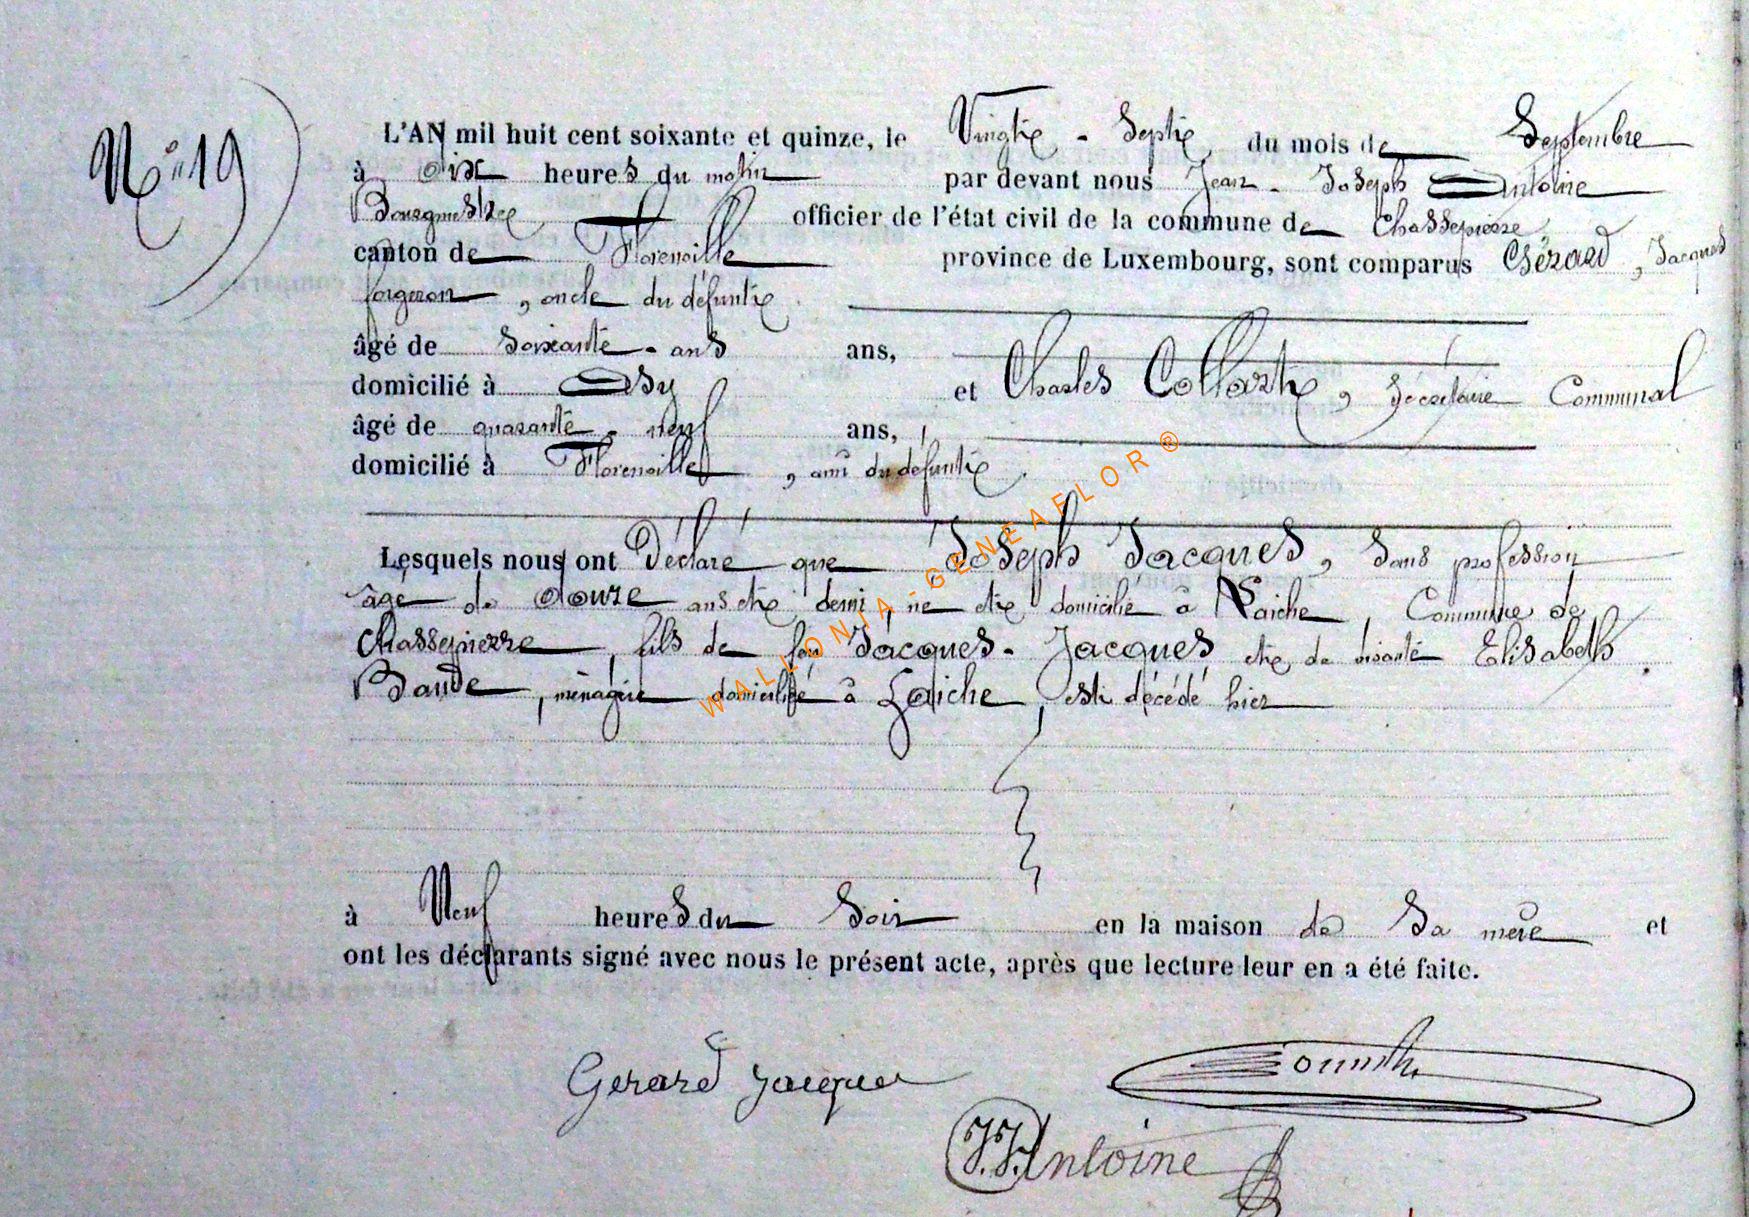 N° 19
L'AN mil huit cent soixante et quinze, le Vingt - Sept du mois de Septembre
à dix heures du matin par devant nous Jean - Joseph Antoine
Bourgmestre officier de l'état civil de la commune de Chassepierre
canton de Florenville province de Luxembourg, sont comparus Gérard, Jacques
forgeron, oncle du défunt
âgé de soixante - ans ans,
domicilié à et Charles Collart, Secrétaire Communal
âgé de quarante - neuf ans,
domicilié à Florenville, ami du défunt.
Lesquels nous ont Déclaré que Joseph Jacques, sans profession
âgé de douze ans et demi, né et domicilié à Laiche, Commune de
Chassepierre, fils de feu Jacques - Jacques et de vivante Elisabeth
Baude, ménagère domiciliée à Laiche, est décédé hier
à Neuf heures du Soir en la maison de Sa mère et
ont les déclarants signé avec nous le présent acte, après que lecture leur en a été faite.
Gerard Jacques
J.J. Antoine
WALLONIA-GENEAFLOR®